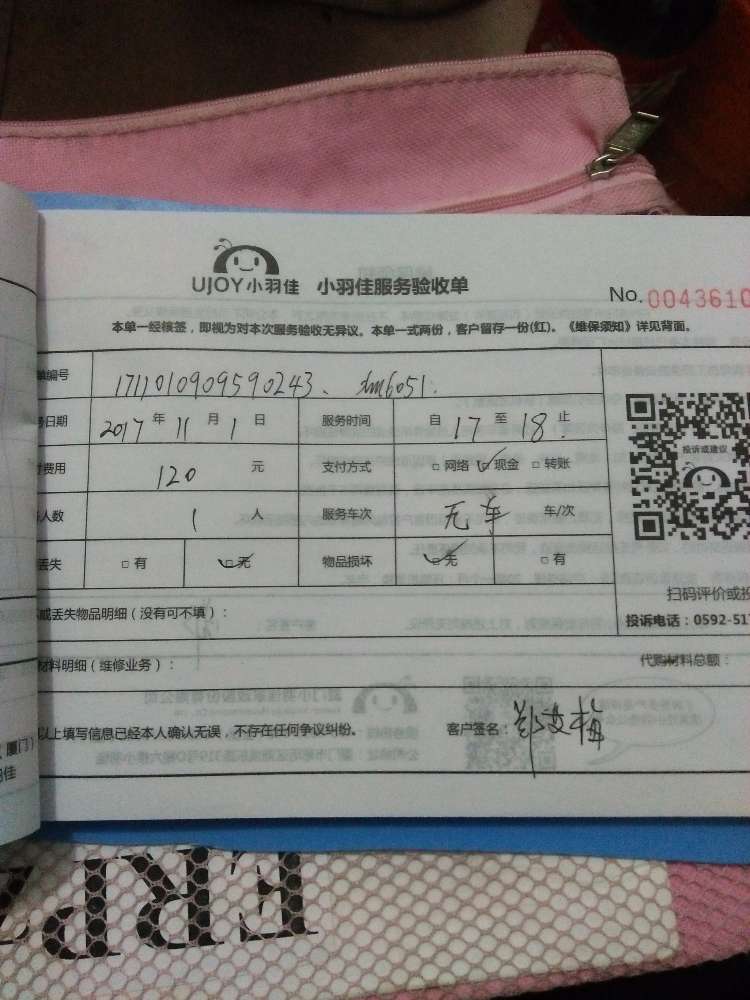 UJOY小羽佳 小羽佳服务验收单
No. 0043610
本单一经核签，即视为对本次服务验收无异议。本单一式两份，客户留存一份(红)。《维保须知》详见背面。
单编号 1711010909590243、
日期 2017年11月1日 服务时间 自17至18止
费用 120元 支付方式 □网络 ☑现金 □转账
人数 1人 服务车次 无车 车/次
投诉或建议
丢失 □有 ☑无 物品损坏 ☑无 □有
扫码评价或投
或丢失物品明细（没有可不填）：
投诉电话：0592-517
材料明细（维修业务）： 代购材料总额：
以上填写信息已经本人确认无误，不存在任何争议纠纷。 客户签名：
厦门）
羽佳
ERP